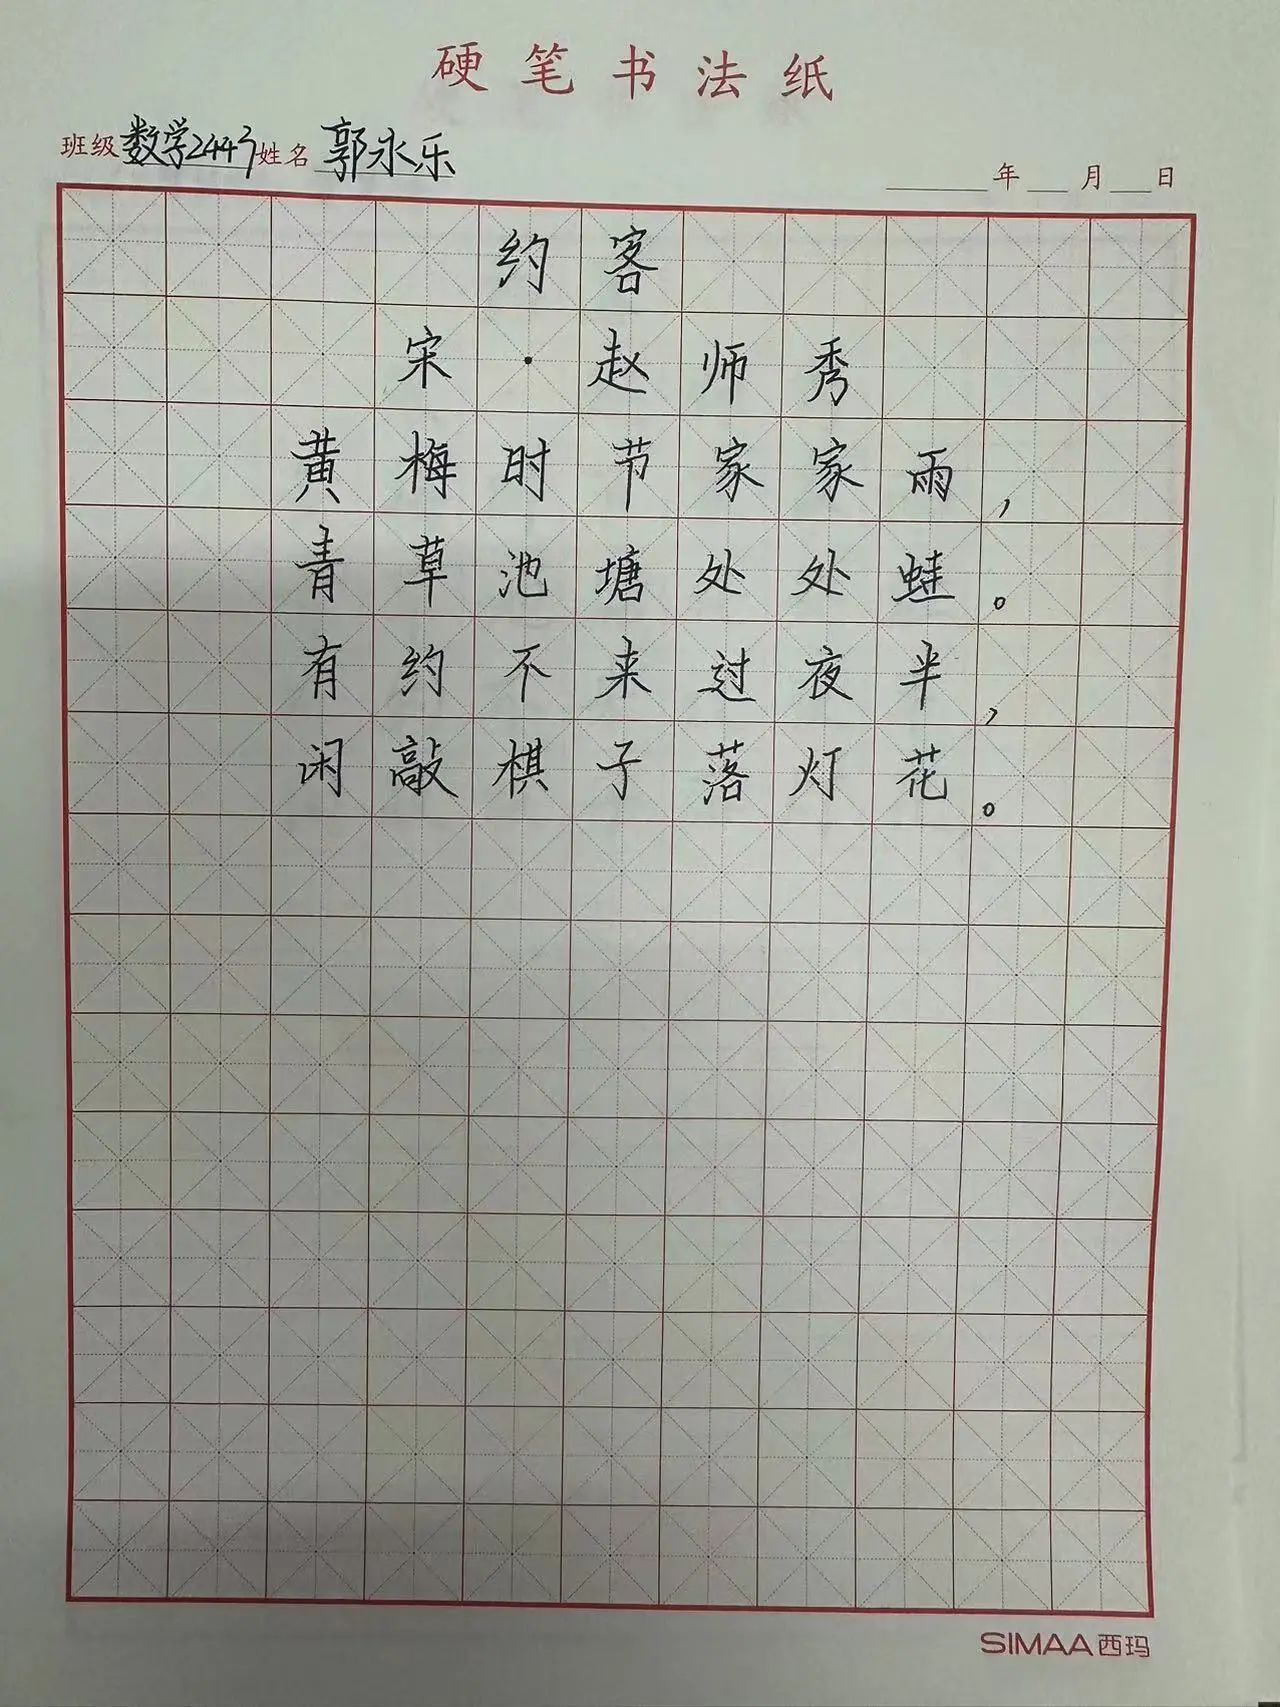 硬笔书法纸
班级 数学2443 姓名 郭永乐
年 月 日
约客
宋·赵师秀
黄梅时节家家雨，
青草池塘处处蛙。
有约不来过夜半，
闲敲棋子落灯花。
SIMAA西玛